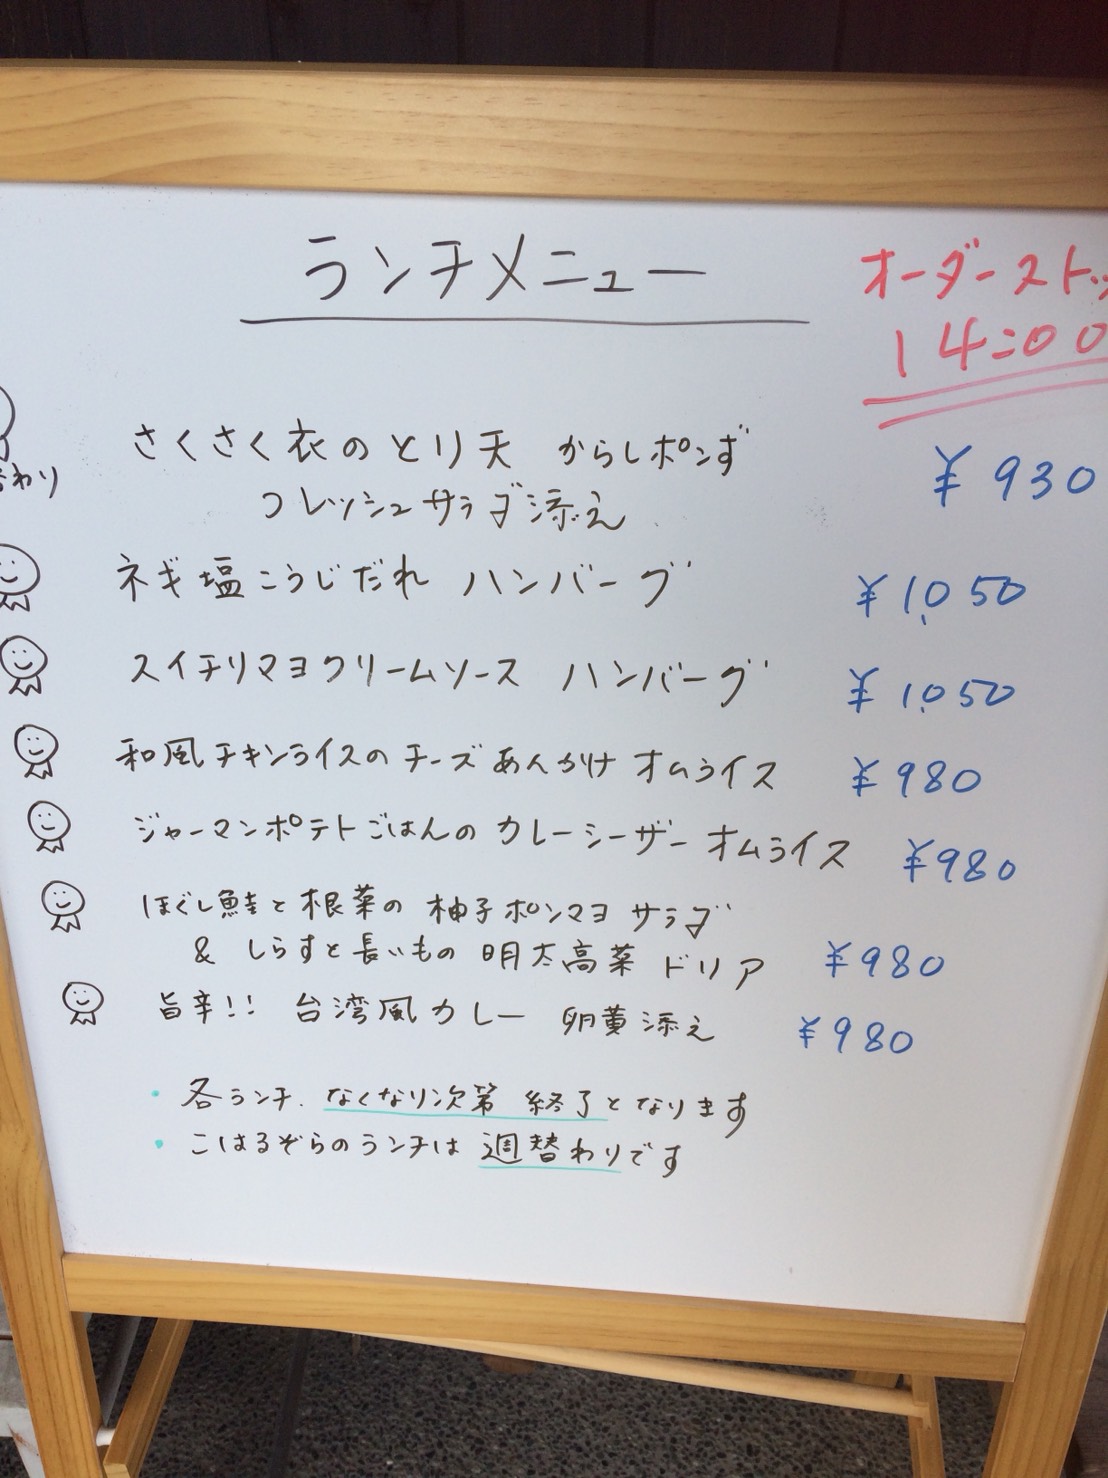 ランチメニュー
オーダーストッ
14:00
わり
さくさく衣のとり天 からしポンず
フレッシュサラダ添え
¥930
ネギ塩こうじだれ ハンバーグ ¥1,050
スイチリマヨクリームソース ハンバーグ ¥1,050
和風チキンライスの チーズあんかけ オムライス ¥980
ジャーマンポテトごはんの カレーシーザー オムライス ¥980
ほぐし鮭と根菜の 柚子ポンマヨ サラダ
& しらすと長いもの 明太高菜 ドリア ¥980
旨辛!! 台湾風カレー 卵黄添え ¥980
・各ランチ、なくなり次第 終了となります
・こはるぞらのランチは 週替わりです